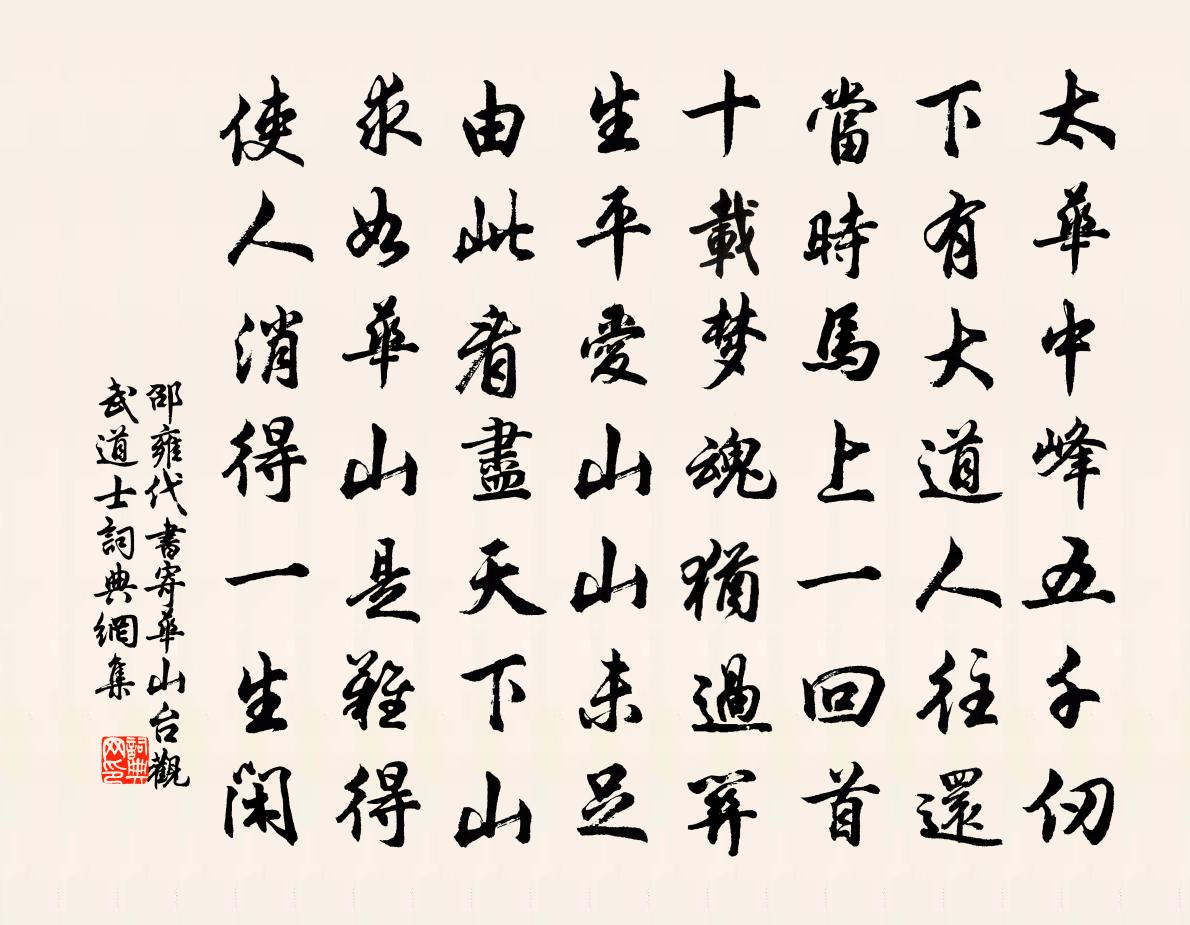 太華中峰五千仞
下有大道人往還
當時馬上一回首
十載梦魂猶過關
生平愛山山未足
由此看盡天下山
求如華山是難得
使人消得一生閑
邵雍代書寄華山台觀
武道士詞典網集
詞典
网印